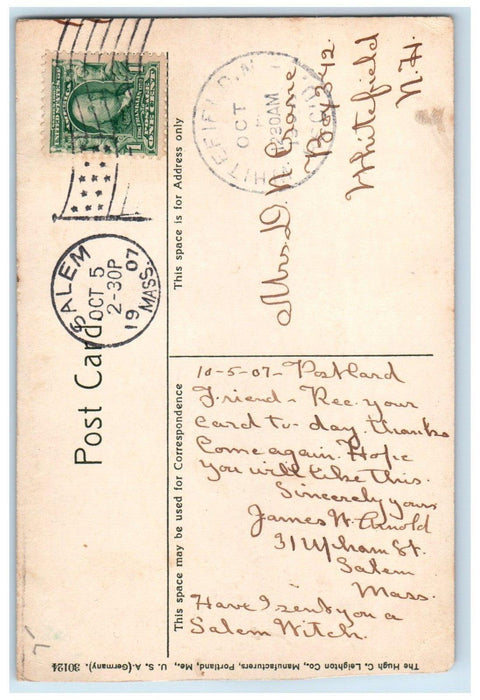 Post Card
SALEM
OCT 5
2-30P
1907
MASS.
WHITEFIELD, N.H.
OCT
7
8 30AM
1907
REC'D.
This space is for Address only
Mrs. D. N. Crane
Box 342.
Whitefield
N.H.
This space may be used for Correspondence
10-5-07- Post Card
Friend - Rec. your
card to-day, thanks
Come again. Hope
you will like this.
Sincerely yours
James W. Arnold
31 Upham St.
Salem
Mass.
Have I sent you a
Salem Witch.
The Hugh C. Leighton Co., Manufacturers, Portland, Me., U. S. A. (Germany). 30124